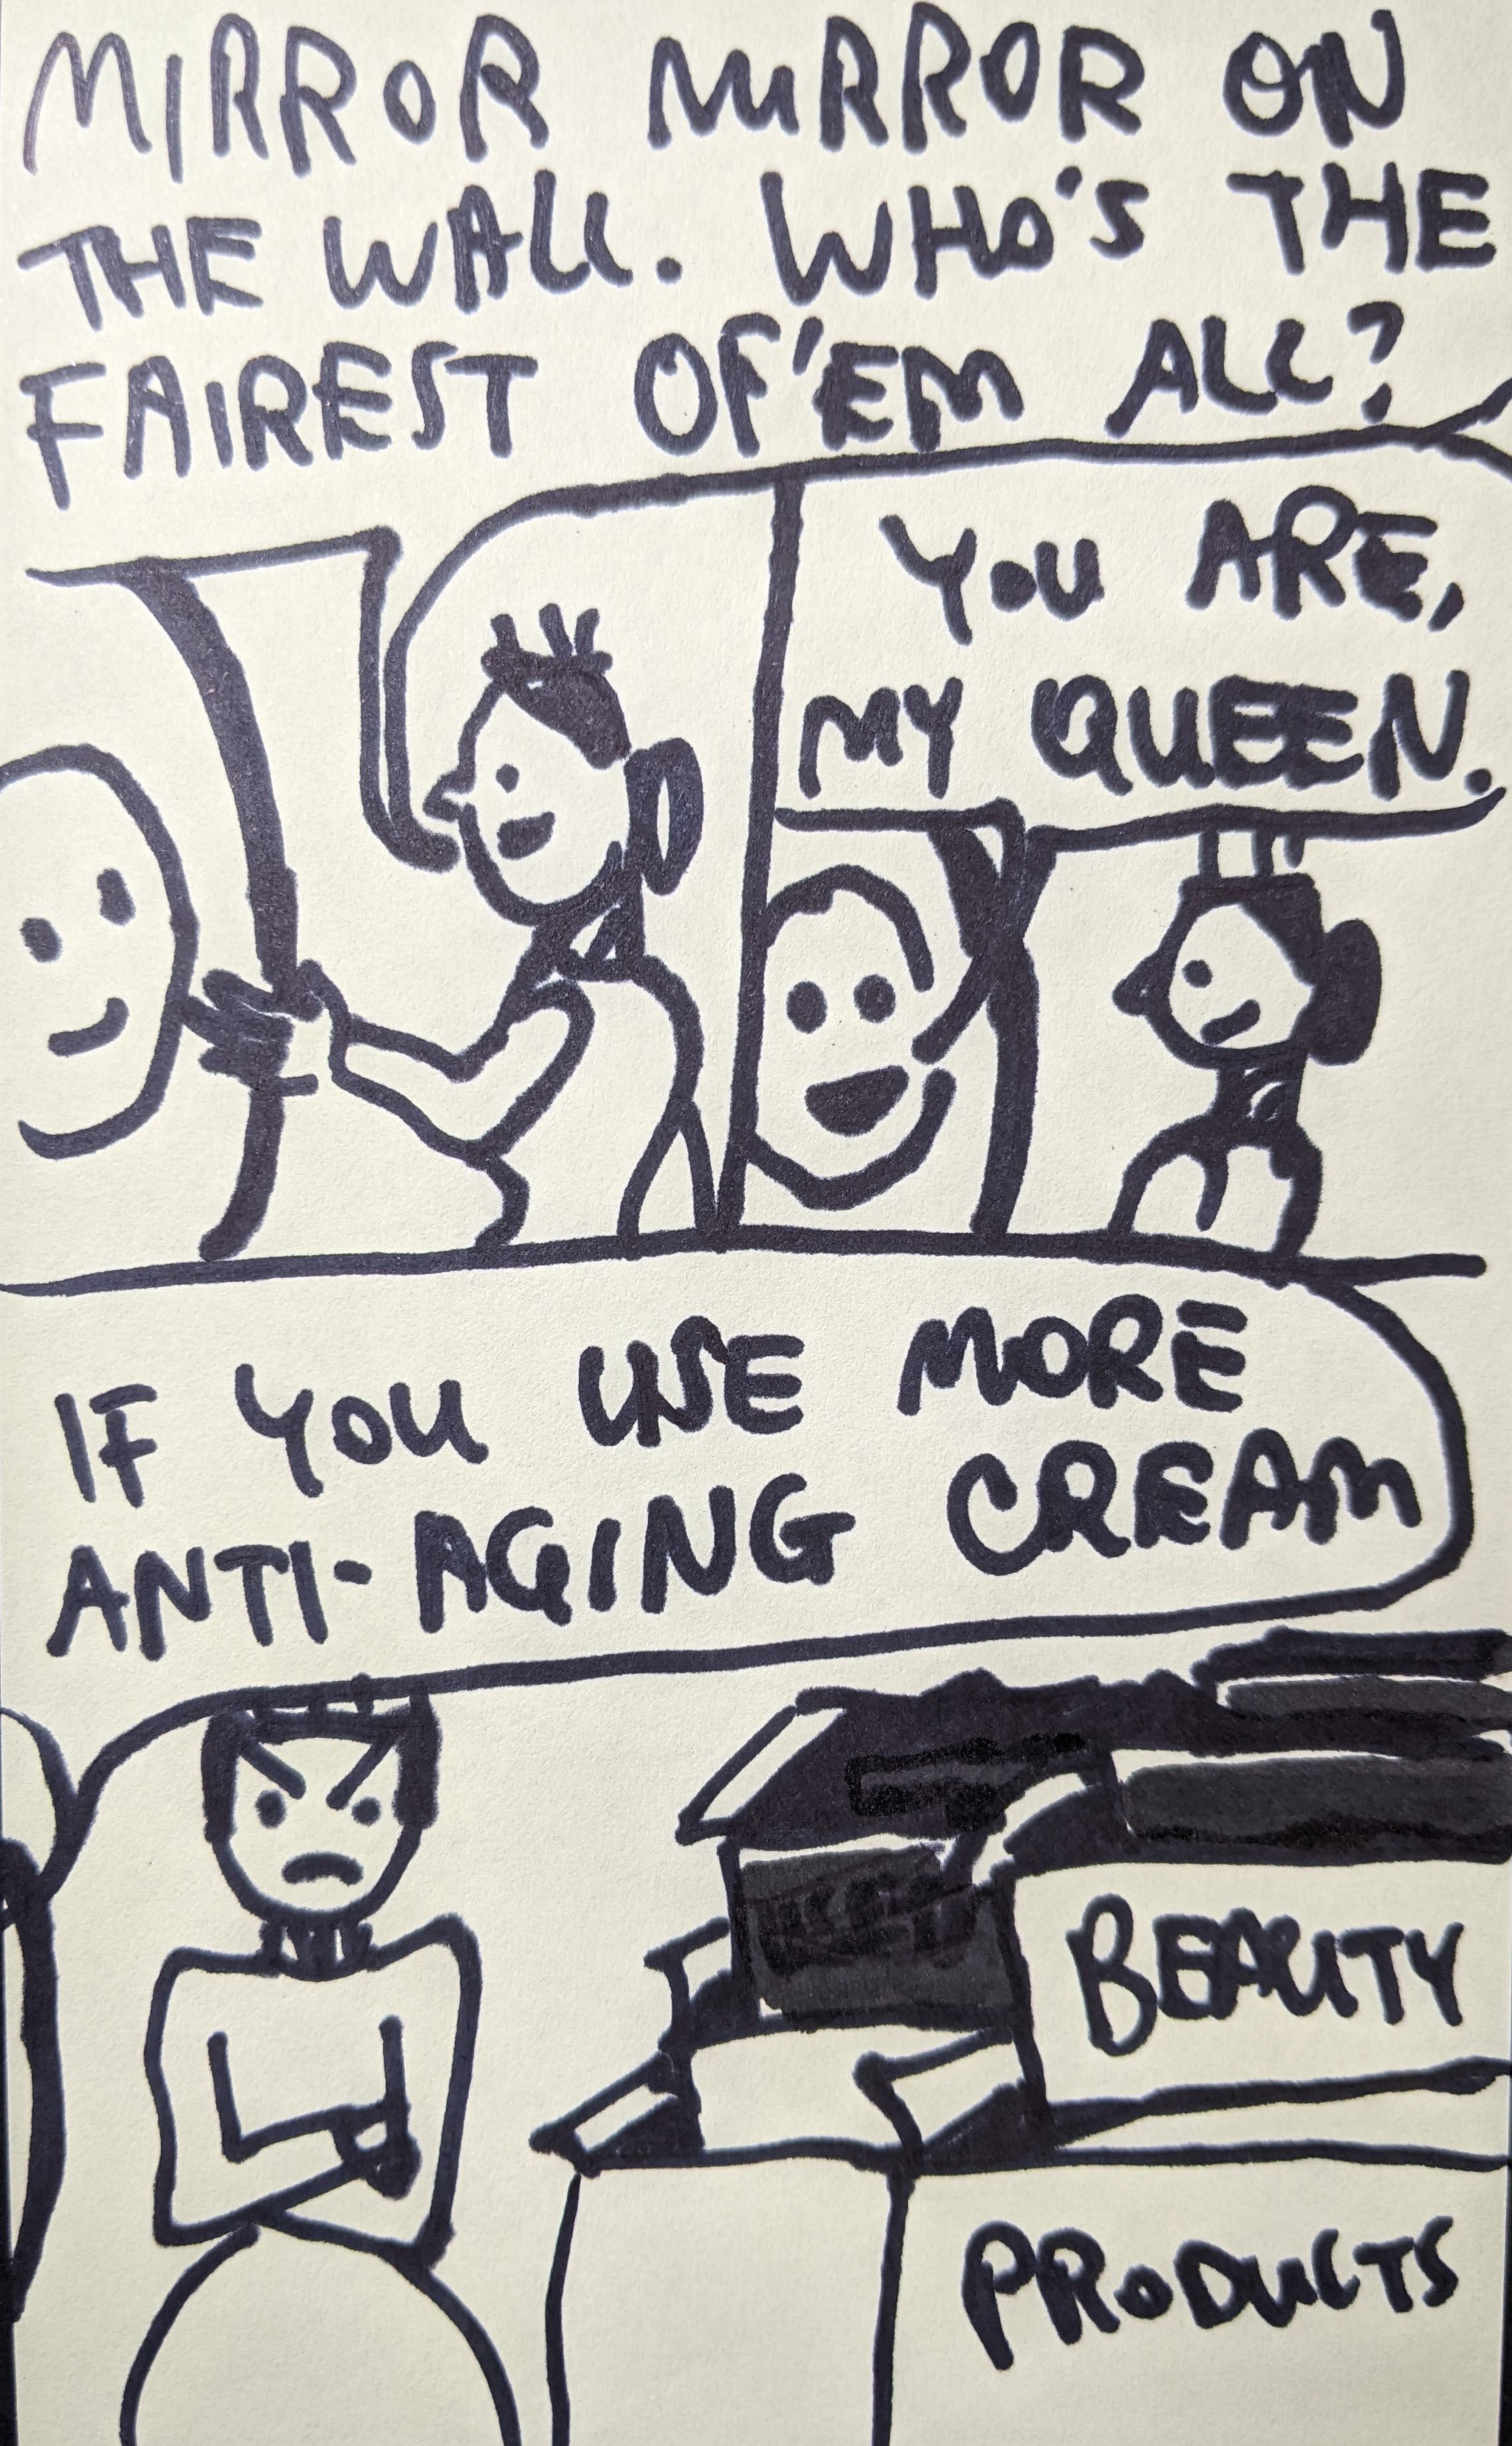 MIRROR MIRROR ON
THE WALL. WHO'S THE
FAIREST OF'EM ALL?
YOU ARE,
MY QUEEN.
IF YOU USE MORE
ANTI-AGING CREAM
BEAUTY
PRODUCTS